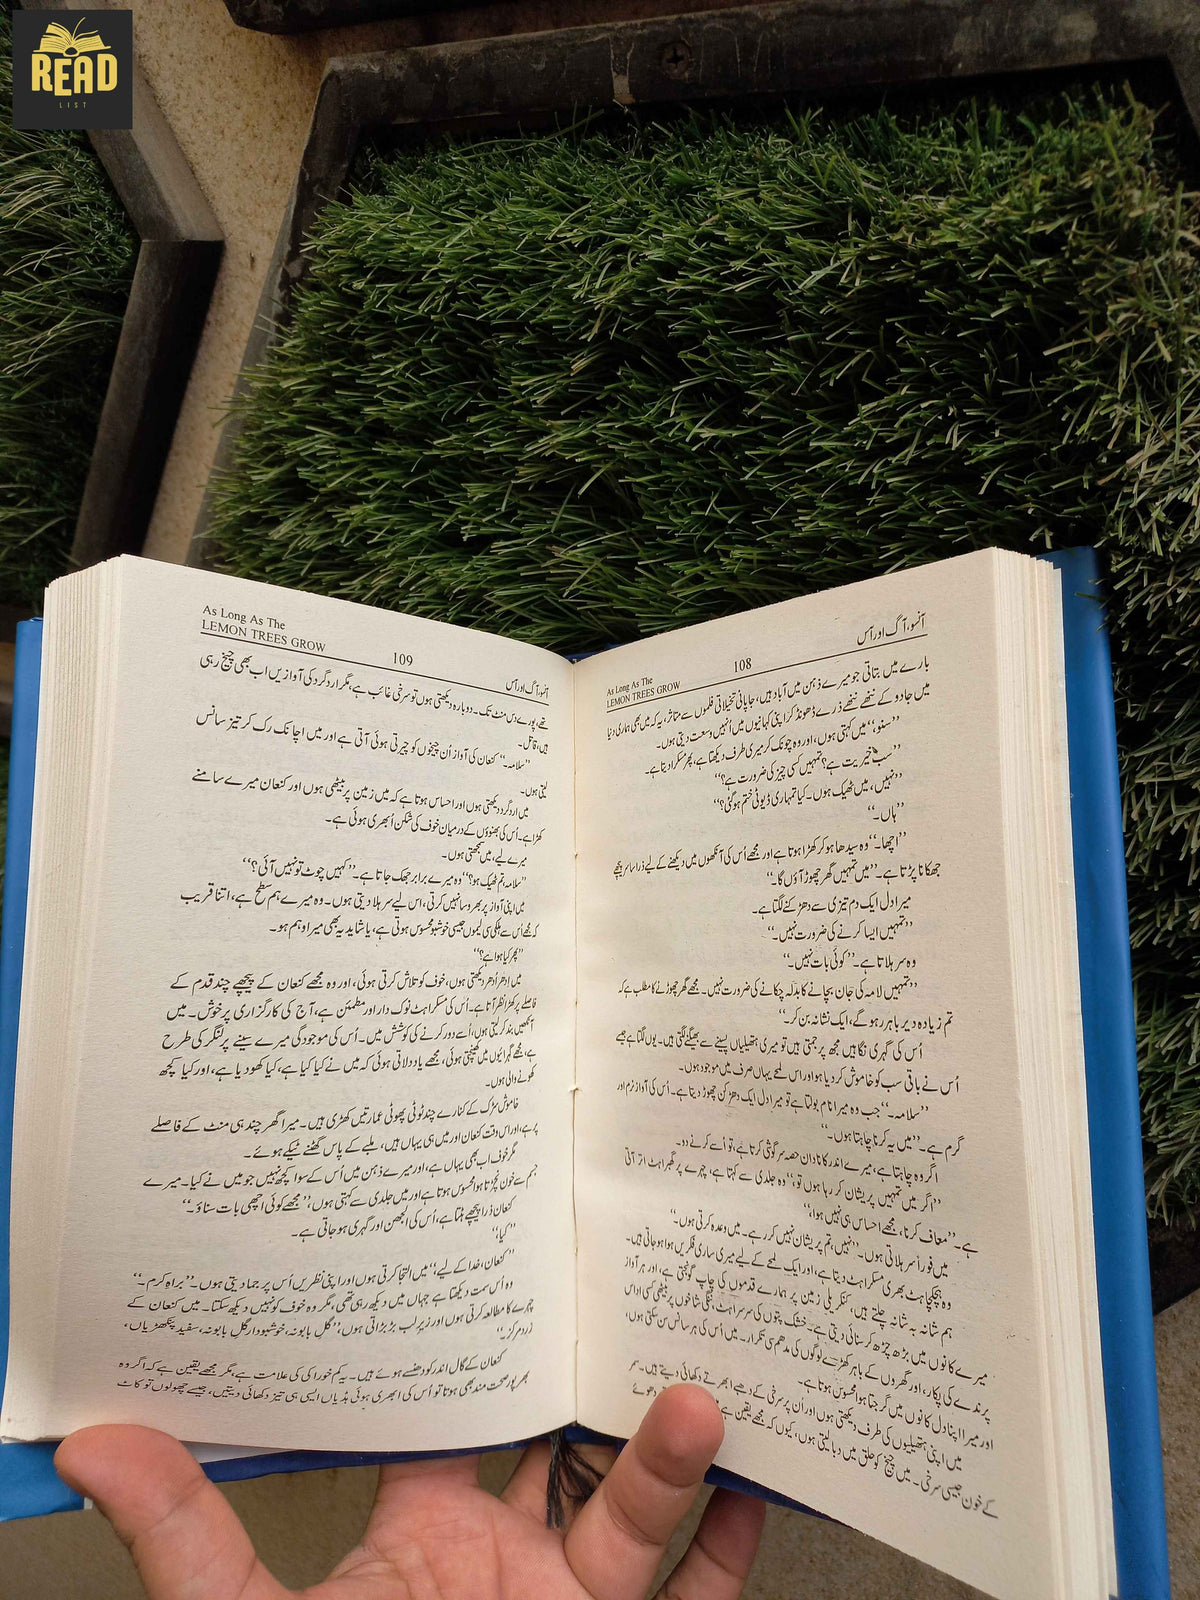 READ
LIST
آنسو، آگ اور آس
108
As Long As The
LEMON TREES GROW
بارے میں بتاتی جو میرے ذہن میں آباد ہیں، جاپانی تخیلاتی فلموں سے متاثر، یہ کہ میں بھی ہماری دنیا
میں جادو کے ننھے ننھے ذرے ڈھونڈ کر اپنی کہانیوں میں اُنہیں وسعت دیتی ہوں۔
”سنو،“ میں کہتی ہوں، اور وہ چونک کر میری طرف دیکھتا ہے، پھر مسکرا دیتا ہے۔
”سب خیریت ہے؟ تمہیں کسی چیز کی ضرورت ہے؟“
”نہیں، میں ٹھیک ہوں۔ کیا تمہاری ڈیوٹی ختم ہو گئی؟“
”ہاں۔“
”اچھا۔“ وہ سیدھا ہو کر کھڑا ہوتا ہے اور مجھے اُس کی آنکھوں میں دیکھنے کے لیے ذرا سا سر پیچھے
جھکانا پڑتا ہے۔ ”میں تمہیں گھر چھوڑ آؤں گا۔“
میرا دل ایک دم تیزی سے دھڑکنے لگتا ہے۔
”تمہیں ایسا کرنے کی ضرورت نہیں۔“
وہ سر ہلاتا ہے۔ ”کوئی بات نہیں۔“
”تمہیں لامہ کی جان بچانے کا بدلہ چکانے کی ضرورت نہیں۔ مجھے گھر چھوڑنے کا مطلب ہے کہ
تم زیادہ دیر باہر رہو گے، ایک نشانہ بن کر۔“
اُس کی گہری نگاہیں مجھ پر جمتی ہیں تو میری ہتھیلیاں پسینے سے بھیگنے لگتی ہیں۔ یوں لگتا ہے جیسے
اُس نے باقی سب کو خاموش کر دیا ہو اور اس لمحے یہاں صرف میں موجود ہوں۔
”سلامہ۔“ جب وہ میرا نام بولتا ہے تو میرا دل ایک دھڑکن چھوڑ دیتا ہے۔ اُس کی آواز نرم اور
گرم ہے۔ ”میں یہ کرنا چاہتا ہوں۔“
اگر وہ چاہتا ہے، میرے اندر کا نادان حصہ سرگوشی کرتا ہے، تو اُسے کرنے دو۔
”اگر میں تمہیں پریشان کر رہا ہوں تو،“ وہ جلدی سے کہتا ہے، چہرے پر گھبراہٹ اتر آتی
ہے۔ ”معاف کرنا، مجھے احساس ہی نہیں ہوا،“
میں فوراً سر ہلاتی ہوں۔ ”نہیں، تم پریشان نہیں کر رہے۔ میں وعدہ کرتی ہوں۔“
وہ ہچکچاہٹ بھری مسکراہٹ دیتا ہے، اور ایک لمحے کے لیے میری ساری فکریں ہوا ہو جاتی ہیں۔
ہم شانہ بہ شانہ چلتے ہیں، کنکریلی زمین پر ہمارے قدموں کی چاپ گونجتی ہے، اور ہر آواز
میرے کانوں میں بڑھ چڑھ کر سنائی دیتی ہے۔ خشک پتوں کی سرسراہٹ، ننگی شاخوں پر بیٹھی کسی اداس
پرندے کی پکار، اور گھروں کے باہر کھڑے لوگوں کی مدھم سی تکرار۔ میں اُس کی ہر سانس سن سکتی ہوں،
اور میرا اپنا دل کانوں میں گرجتا ہوا محسوس ہوتا ہے۔
میں اپنی ہتھیلیوں کی طرف دیکھتی ہوں اور اُن پر سرخی کے دھبے ابھرتے دکھائی دیتے ہیں۔ سر
کے خون جیسی سرخی۔ میں چیخ کو حلق میں دبا لیتی ہوں، کیوں کہ مجھے یقین ہے دھوئے
As Long As The
LEMON TREES GROW
109
آنسو، آگ اور آس
تھے، پورے دس منٹ تک۔ دوبارہ دیکھتی ہوں تو سرخی غائب ہے، مگر اردگرد کی آوازیں اب بھی چیخ رہی
ہیں، قاتل۔
”سلامہ۔“ کنعان کی آواز اُن چیخوں کو چیرتی ہوئی آتی ہے اور میں اچانک رک کر تیز سانس
لیتی ہوں۔
میں اردگرد دیکھتی ہوں اور احساس ہوتا ہے کہ میں زمین پر بیٹھی ہوں اور کنعان میرے سامنے
کھڑا ہے۔ اُس کی بھنوؤں کے درمیان خوف کی شکن اُبھری ہوئی ہے۔
میرے لیے، میں سمجھتی ہوں۔
”سلامہ، تم ٹھیک ہو؟“ وہ میرے برابر جھک جاتا ہے۔ ”کہیں چوٹ تو نہیں آئی؟“
میں اپنی آواز پر بھروسا نہیں کرتی، اس لیے سر ہلا دیتی ہوں۔ وہ میرے ہم سطح ہے، اتنا قریب
کہ مجھے اُس سے ہلکی سی لیموں جیسی خوشبو محسوس ہوتی ہے، یا شاید یہ بھی میرا وہم ہو۔
”پھر کیا ہوا ہے؟“
میں ادھر اُدھر دیکھتی ہوں، خوف کو تلاش کرتی ہوئی، اور وہ مجھے کنعان کے پیچھے چند قدم کے
فاصلے پر کھڑا نظر آتا ہے۔ اُس کی مسکراہٹ نوک دار اور مطمئن ہے، آج کی کارگزاری پر خوش۔ میں
آنکھیں بند کر لیتی ہوں، اُسے دور کرنے کی کوشش میں۔ اُس کی موجودگی میرے سینے پر لنگر کی طرح
ہے، مجھے گہرائیوں میں کھینچتی ہوئی، مجھے یاد دلاتی ہوئی کہ میں نے کیا کیا ہے، کیا کھو دیا ہے، اور کیا کچھ
کھونے والی ہوں۔
خاموش سڑک کے کنارے چند ٹوٹی پھوٹی عمارتیں کھڑی ہیں۔ میرا گھر چند ہی منٹ کے فاصلے
پر ہے، اور اس وقت کنعان اور میں ہی یہاں ہیں، ملبے کے پاس گھٹنے ٹیکے ہوئے۔
مگر خوف اب بھی یہاں ہے، اور میرے ذہن میں اُس کے سوا کچھ نہیں جو میں نے کیا۔ میرے
جسم سے خون نچڑتا ہوا محسوس ہوتا ہے اور میں جلدی سے کہتی ہوں، ”مجھے کوئی اچھی بات سناؤ۔“
کنعان ذرا پیچھے ہٹتا ہے، اُس کی الجھن اور گہری ہو جاتی ہے۔
”کیا“
”کنعان، خدا کے لیے،“ میں التجا کرتی ہوں اور اپنی نظریں اُس پر جما دیتی ہوں۔ ”براہِ کرم۔“
وہ اُس سمت دیکھتا ہے جہاں میں دیکھ رہی تھی، مگر وہ خوف کو نہیں دیکھ سکتا۔ میں کنعان کے
چہرے کا مطالعہ کرتی ہوں اور زیرِ لب بڑبڑاتی ہوں، ”گلِ بابونہ، خوشبودار گلِ بابونہ، سفید پنکھڑیاں،
زرد مرکز۔“
کنعان کے گال اندر کو دھنسے ہوئے ہیں۔ یہ کم خوراکی کی علامت ہے، مگر مجھے یقین ہے کہ اگر وہ
بھرپور صحت مند بھی ہوتا تو اُس کی ابھری ہوئی ہڈیاں ایسی ہی تیز دکھائی دیتیں، جیسے چھولوں تو کاٹ